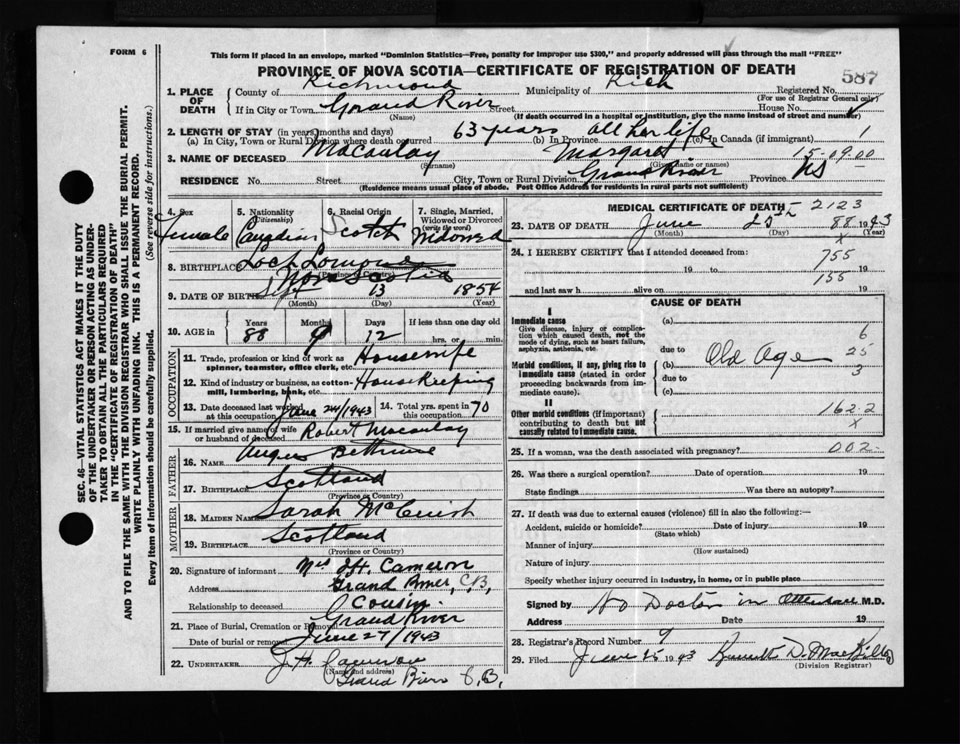 FORM 6
This form if placed in an envelope, marked "Dominion Statistics—Free, penalty for improper use $300," and properly addressed will pass through the mail "FREE"
PROVINCE OF NOVA SCOTIA—CERTIFICATE OF REGISTRATION OF DEATH
587
1. PLACE OF DEATH
County of Richmond Municipality of Rich Registered No.
(For use of Registrar General only)
If in City or Town Grand River Street House No.
(Name) (If death occurred in a hospital or institution, give the name instead of street and number)
2. LENGTH OF STAY (in years, months and days)
(a) In City, Town or Rural Division where death occurred 63 years (b) In Province all her life (c) In Canada (if immigrant) 1
3. NAME OF DECEASED Macaulay Margaret 15-09-00
(Surname) (Given name or names)
RESIDENCE No. Street City, Town or Rural Division Grand River Province NS
(Residence means usual place of abode. Post Office Address for residents in rural parts not sufficient)
4. Sex Female
5. Nationality (Citizenship) Canadian
6. Racial Origin Scotch
7. Single, Married, Widowed or Divorced (write the word) Widowed
8. BIRTHPLACE Loch Lomond
Nova Scotia
9. DATE OF BIRTH 13 1854
(Month) (Day) (Year)
10. AGE in Years Months Days If less than one day old
88 9 12 hrs. or min.
OCCUPATION
11. Trade, profession or kind of work as spinner, teamster, office clerk, etc. Housewife
12. Kind of industry or business, as cotton-mill, lumbering, bank, etc. House Keeping
13. Date deceased last worked at this occupation June 24/1943 14. Total yrs. spent in 70
15. If married give name of wife or husband of deceased Robert Macaulay
FATHER
16. NAME Angus Bethune
17. BIRTHPLACE Scotland
(Province or Country)
MOTHER
18. MAIDEN NAME Sarah McCuish
19. BIRTHPLACE Scotland
(Province or Country)
20. Signature of informant Mrs J.H. Cameron
Address Grand River, C.B.
Relationship to deceased Cousin
21. Place of Burial, Cremation or Removal Grand River
Date of burial or removal June 27/1943
22. UNDERTAKER J.H. Cameron
(Name and address)
Grand River C.B.
MEDICAL CERTIFICATE OF DEATH 2123
23. DATE OF DEATH June 25th 88 1943
(Month) (Day) (Year)
X
24. I HEREBY CERTIFY that I attended deceased from:
19 to 755 19
and last saw h alive on 155 19
CAUSE OF DEATH
I
Immediate cause (a)
Give disease, injury or complication which caused death, not the mode of dying, such as heart failure, asphyxia, asthenia, etc.
6
due to
Morbid conditions, if any, giving rise to immediate cause (stated in order proceeding backwards from immediate cause)
(b) Old Age 25
due to 3
(c)
II
Other morbid conditions (if important) contributing to death but not causally related to immediate cause.
162.2
X
25. If a woman, was the death associated with pregnancy? 002
26. Was there a surgical operation? Date of operation 19
State findings Was there an autopsy?
27. If death was due to external causes (violence) fill in also the following:—
Accident, suicide or homicide? Date of injury 19
(State which)
Manner of injury
(How sustained)
Nature of injury
Specify whether injury occurred in industry, in home, or in public place
Signed by No Doctor in Attendance M.D.
Address Date 19
28. Registrar's Record Number 9
29. Filed June 25 1943 Kenneth D. MacKillop
(Division Registrar)
SEC. 46—VITAL STATISTICS ACT MAKES IT THE DUTY
OF THE UNDERTAKER OR PERSON ACTING AS UNDERTAKER TO OBTAIN ALL THE PARTICULARS REQUIRED
IN THE "CERTIFICATE OF REGISTRATION OF DEATH"
AND TO FILE THE SAME WITH THE DIVISION REGISTRAR WHO SHALL ISSUE THE BURIAL PERMIT.
WRITE PLAINLY WITH UNFADING INK. THIS IS A PERMANENT RECORD.
Every item of information should be carefully supplied.
(See reverse side for instructions.)